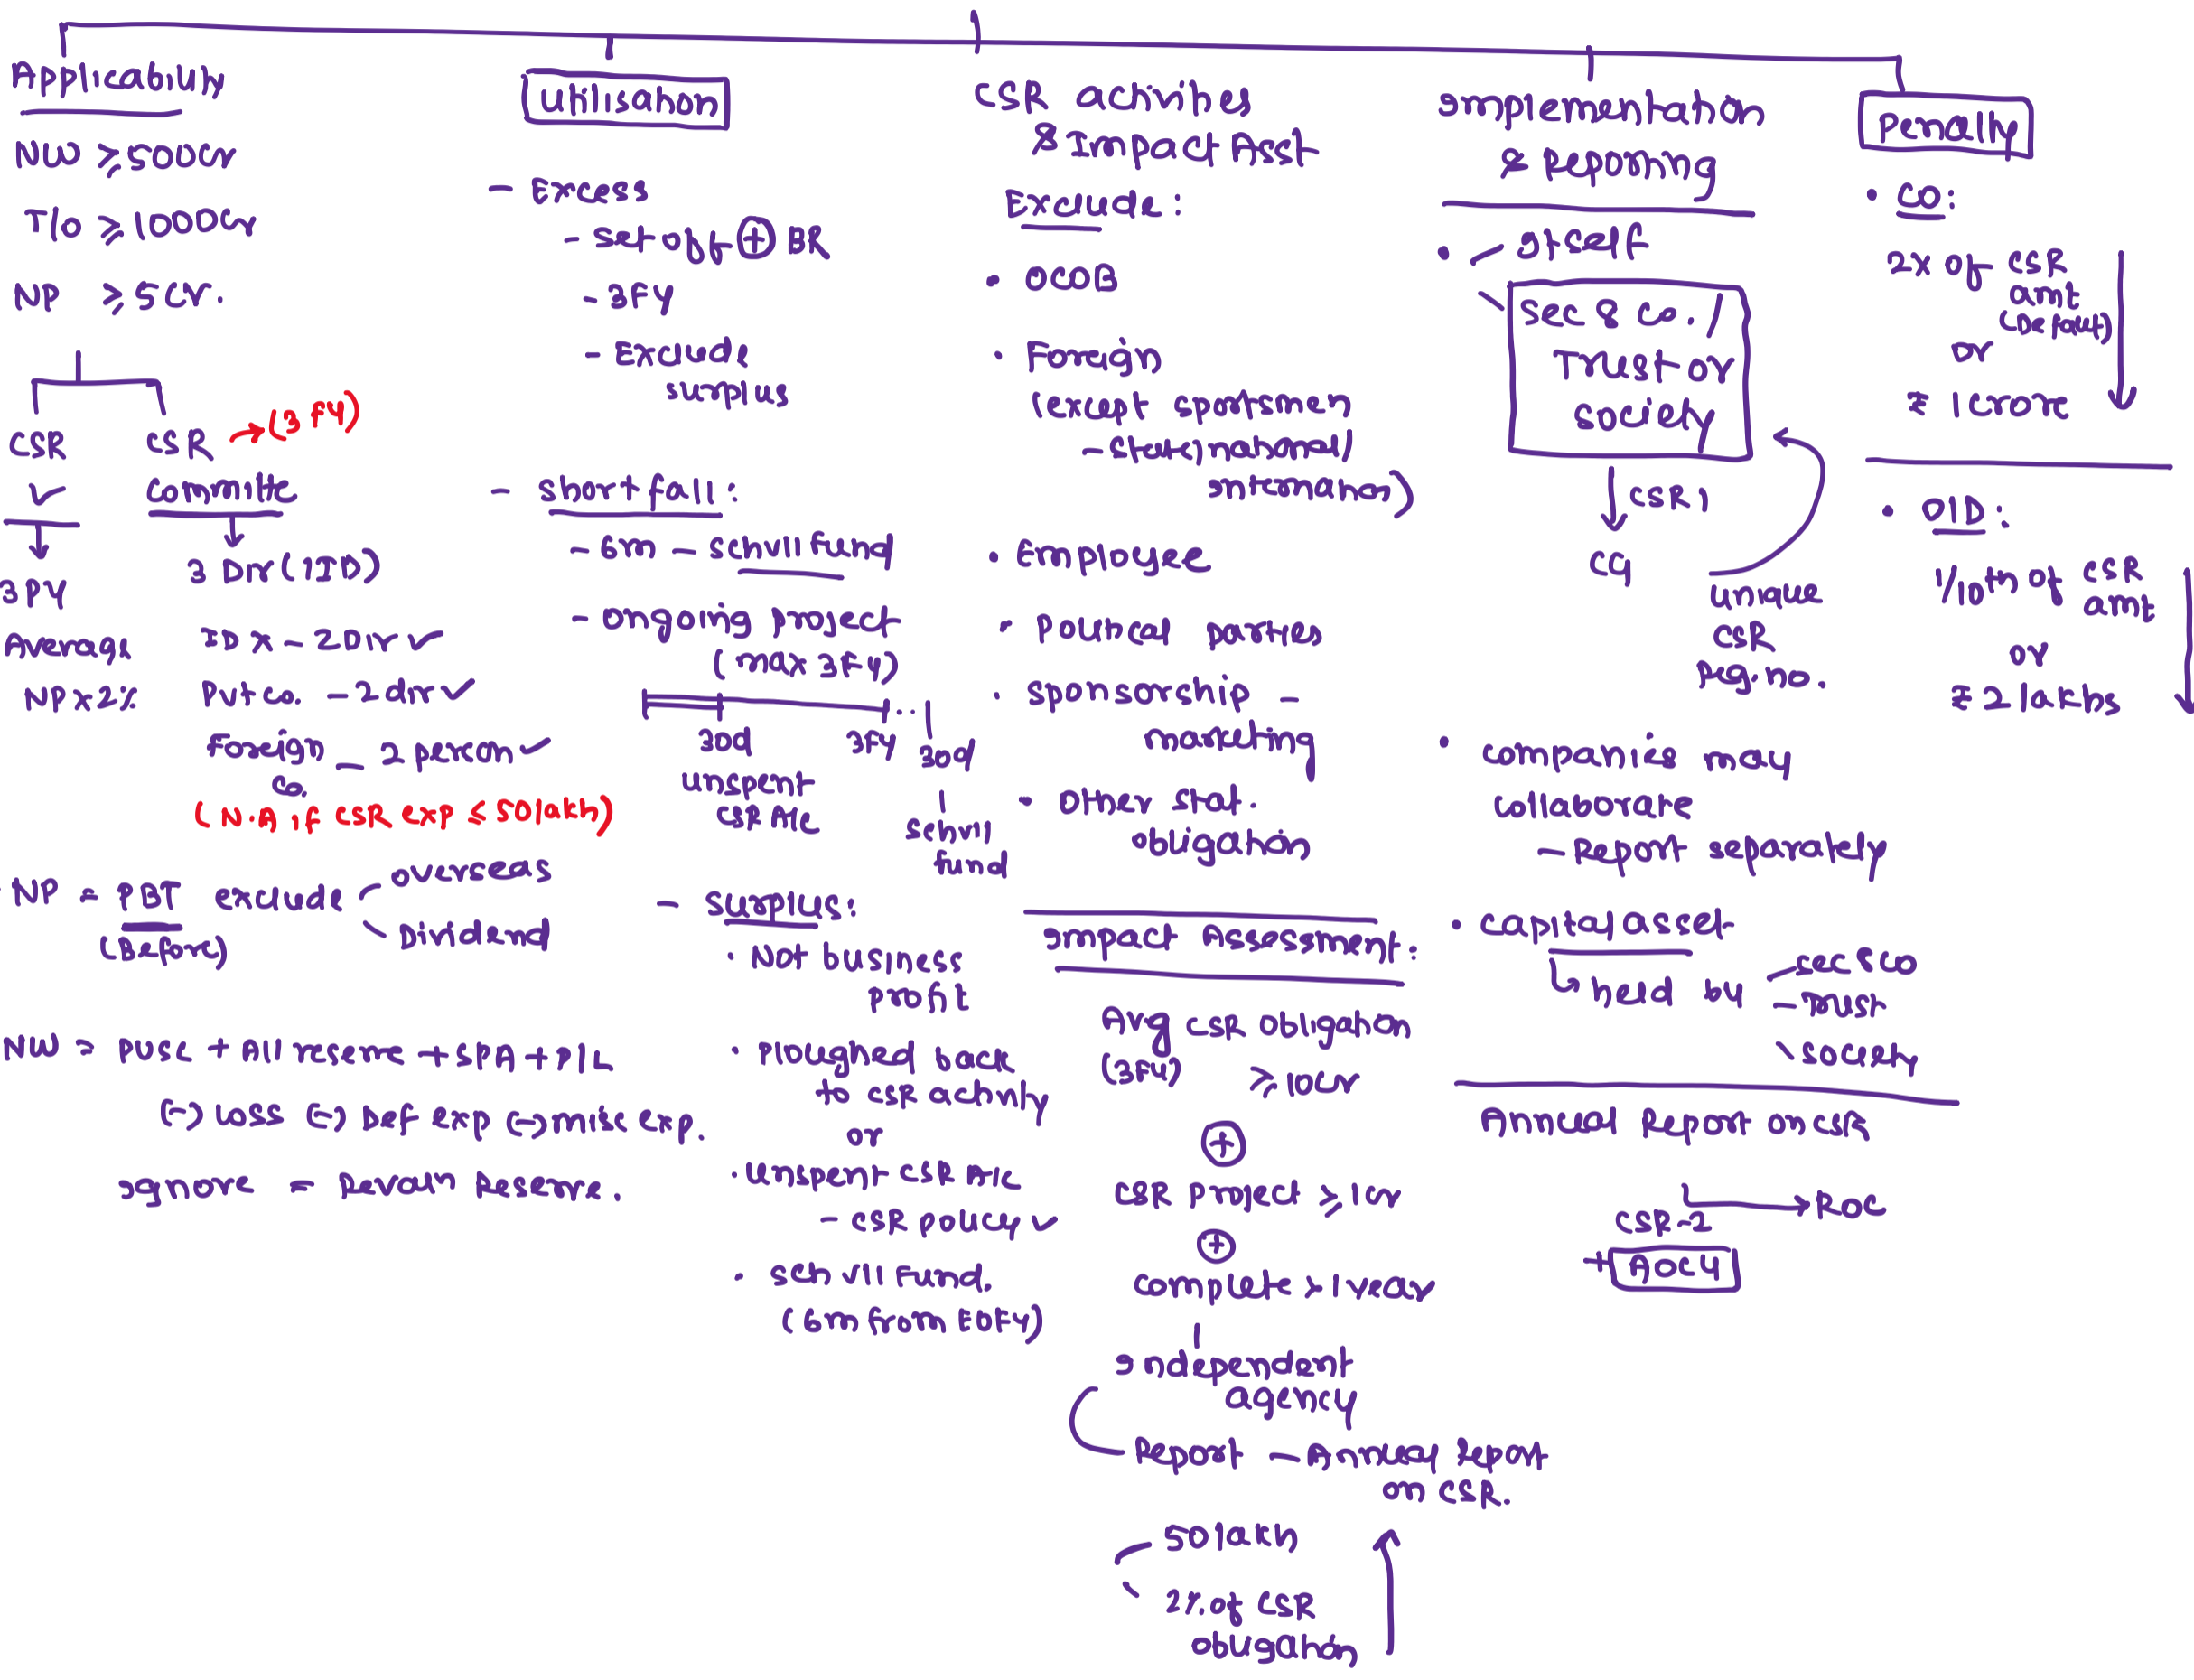 Applicability
NW ≥ 500Cr
T/o ≥ 1000Cr
NP ≥ 5Cr.
CSR
✓
3PY
Average
NP x 2%
CSR → (3 FY)
Committe
3 Dir (1ID)
ID x - 2 Dir ✓
Pvt co. - 2 dir ✓
Foreign co. - 2 person ✓
(N.A if CSR exp ≤ 50lakh)
NP = PBT exclude - overseas
(Before)
- Dividend
NW = PUSC + All reserve + SPA + P/L
(-) Loss (-) Def exp (-) misc exp.
Ignore - Revalun Reserve.
Utilisation
- Excess
- set off ⊕ BR
- 3FY
- Exclude
surplus
- short fall:
- 6m - sch VII fund
- ongoing project
(max 3FY)
30d
unspent
CSR A/c
3FY
30d
sch VII
fund
- Surplus:
• Not business
profit
• Ploughed back
to CSR activity
or
• unspent CSR A/c
- CSR policy ✓
• sch VII Fund.
(6m from EOFY)
CSR activities
& Impact Asst
Exclude:
• OCOB
• Foreign
(except sportsmen
- state, national,
Internation)
• Employee
• Political parties
• sponsorship -
marketing
• other stat.
obligation
Impact Assessment:
Avg CSR obligation
(3FY) ≥ 10Cr
⊕
CSR Project ≥ 1Cr
⊕
complete > 1 year
Independent
agency
Report - Annual report
on CSR.
50 lakh
2% of CSR
obligation
Implementation
& Reporting
• Itself
Sec 8 Co. /
Trust or
society
CSR 1
CG
unique
CSR
Reg. no.
• companies may
collaborate
- Report separately
• capital asset
held by - sec 8 co
- Trust
- society
Annual Report on CSR
CSR-2 → ROC
+ AOC4
Penalty
• CO:
2x of CSR
amt
(Default)
or
₹ 1 crore
• OID:
1/10th of CSR
amt
or
₹ 2 lakhs